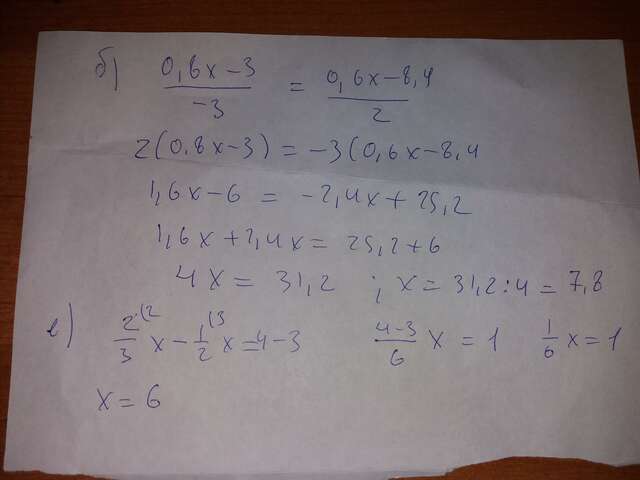 б) (0,8x-3)/-3 = (0,6x-8,4)/2
2(0.8x-3) = -3(0,6x-8,4
1,6x-6 = -2,4x+25,2
1,6x+2,4x = 25,2+6
4x = 31,2 ; x = 31,2:4 = 7,8
е) 2/3 (2 x - 1/2 (3 x = 4-3 (4-3)/6 x = 1 1/6 x = 1
x = 6